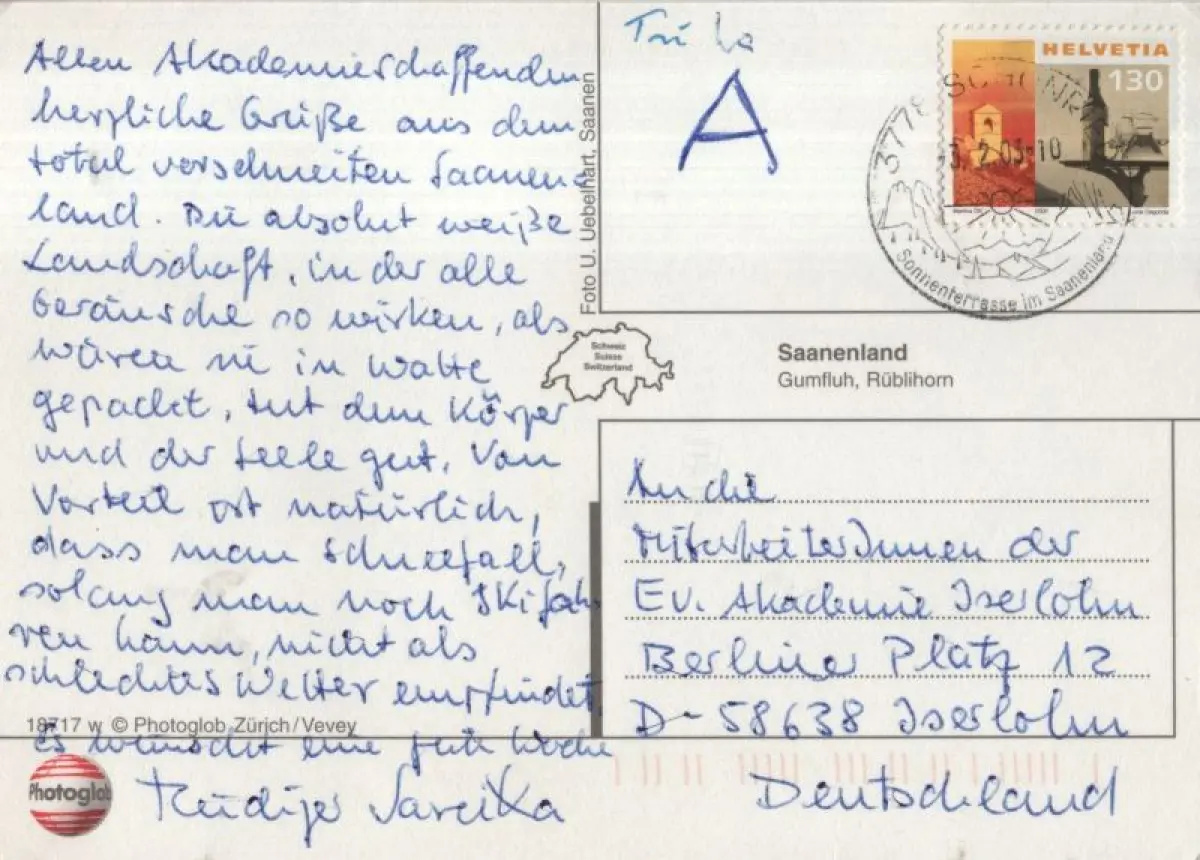 Allen Akademieschaffenden
herzliche Grüße aus dem
total verschneiten Saanen-
land. Die absolut weiße
Landschaft, in der alle
Geräusche so wirken, als
wären sie in Watte
gepackt, tut dem Körper
und der Seele gut. Von
Vorteil ist natürlich,
dass man Schneefall,
solang man noch Skifah-
ren kann, nicht als
schlechtes Wetter empfindet.
Es wünscht eine gute Woche
Rüdiger Sareika
18717 w © Photoglob Zürich/Vevey
Photoglob
Foto U. Uebelhart, Saanen
Schweiz
Suisse
Switzerland
A
HELVETIA
130
3778
3.2.03-10
Sonnenterrasse im Saanenland
Saanenland
Gumfluh, Rüblihorn
An die
MitarbeiterInnen der
Ev. Akademie Iserlohn
Berliner Platz 12
D-58638 Iserlohn
Deutschland